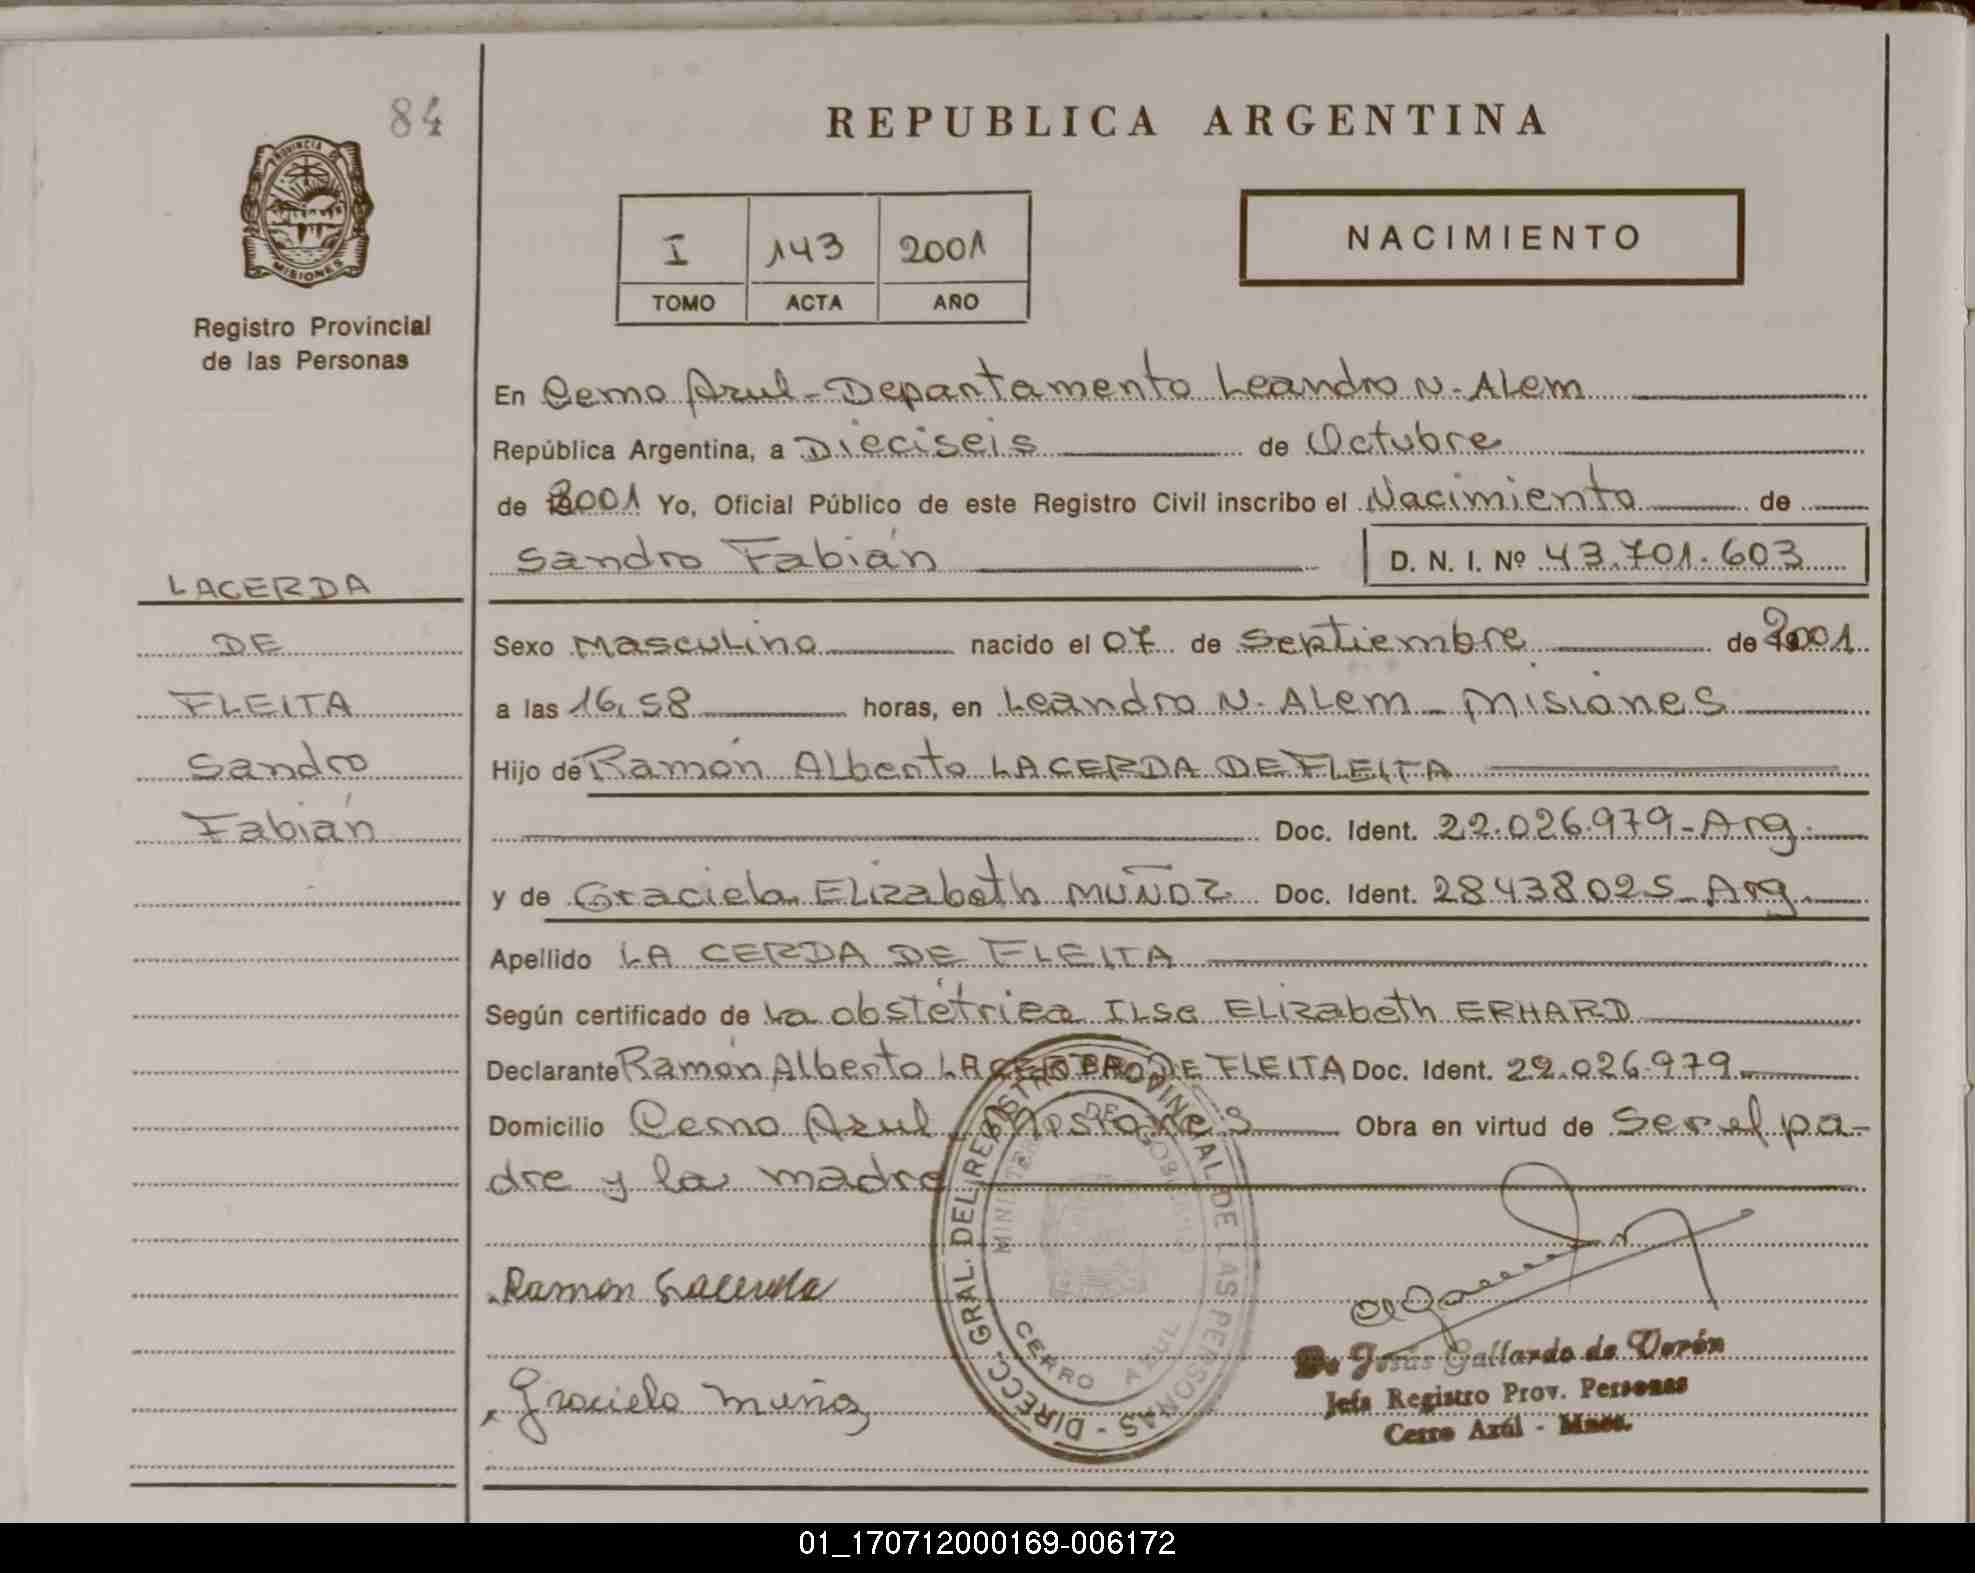 84
REPUBLICA ARGENTINA
PROVINCIA DE
MISIONES
Registro Provincial
de las Personas
I 143 2001
TOMO ACTA AÑO
NACIMIENTO
En Cerro Azul - Departamento Leandro N. Alem
República Argentina, a Dieciseis de Octubre
de 2001 Yo, Oficial Público de este Registro Civil inscribo el Nacimiento de
Sandro Fabián D. N. I. Nº 43.701.603
LACERDA
DE
FLEITA
Sandro
Fabián
Sexo Masculino nacido el 07 de Septiembre de 2001
a las 16,58 horas, en Leandro N. Alem - Misiones
Hijo de Ramón Alberto LACERDA DE FLEITA
Doc. Ident. 22.026.979 - Arg.
y de Graciela Elizabeth MUÑOZ Doc. Ident. 28438025 - Arg.
Apellido LA CERDA DE FLEITA
Según certificado de la obstétrica Ilse Elizabeth ERHARD
Declarante Ramón Alberto LACERDA DE FLEITA Doc. Ident. 22.026.979
Domicilio Cerro Azul - Misiones Obra en virtud de Ser el pa-
dre y la madre
Ramon Lacerda
Graciela Muñoz
DIRECC. GRAL. DEL REGISTRO PROVINCIAL DE LAS PERSONAS -
MINISTERIO DE GOBIERNO
CERRO AZUL
De Jesús Gallardo de Verón
Jefa Registro Prov. Personas
Cerro Azúl - Mnes.
01_170712000169-006172